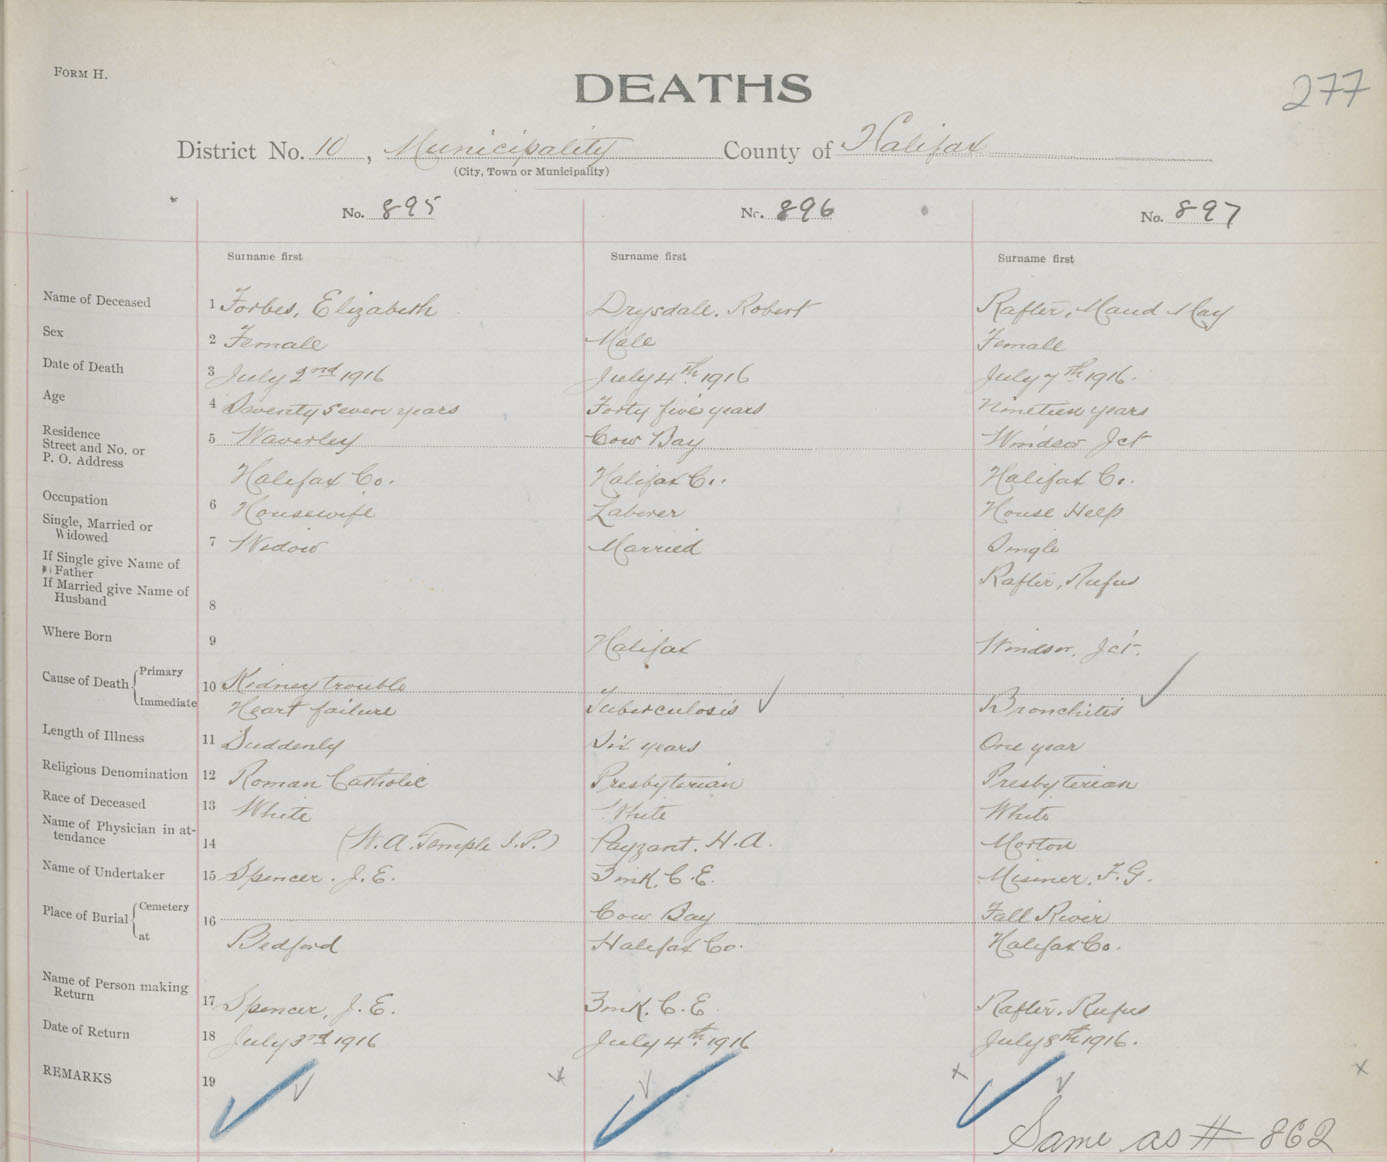 FORM H.
DEATHS
277
District No. 10, Municipality County of Halifax
(City, Town or Municipality)
No. 895 No. 896 No. 897
Surname first Surname first Surname first
Name of Deceased 1 Forbes, Elizabeth Drysdale. Robert Rafter, Maud May
Sex 2 Female Male Female
Date of Death 3 July 2nd 1916 July 4th 1916 July 7th 1916.
Age 4 Seventy seven years Forty five years Nineteen years
Residence
Street and No. or
P. O. Address
5 Waverley Cow Bay Windsor Jct
Halifax Co. Halifax Co. Halifax Co.
Occupation 6 Housewife Laborer House Help
Single, Married or
Widowed
7 Widow Married Single
If Single give Name of
Father
Rafter, Rufus
If Married give Name of
Husband
8
Where Born 9 Halifax Windsor, Jct.
Cause of Death Primary 10 Kidney trouble
Immediate Heart failure Tuberculosis Bronchitis
Length of Illness 11 Suddenly Six years One year
Religious Denomination 12 Roman Catholic Presbyterian Presbyterian
Race of Deceased 13 White White White
Name of Physician in at-
tendance
14 (W. A. Temple J.P.) Payzant. H. A. Morton
Name of Undertaker 15 Spencer. J. E. Zink. C. E. Misener. F. G.
Place of Burial Cemetery 16 Cow Bay Fall River
at Bedford Halifax Co. Halifax Co.
Name of Person making
Return
17 Spencer, J. E. Zink. C. E. Rafter. Rufus
Date of Return 18 July 3rd 1916 July 4th 1916 July 8th 1916.
REMARKS 19
Same as # 862